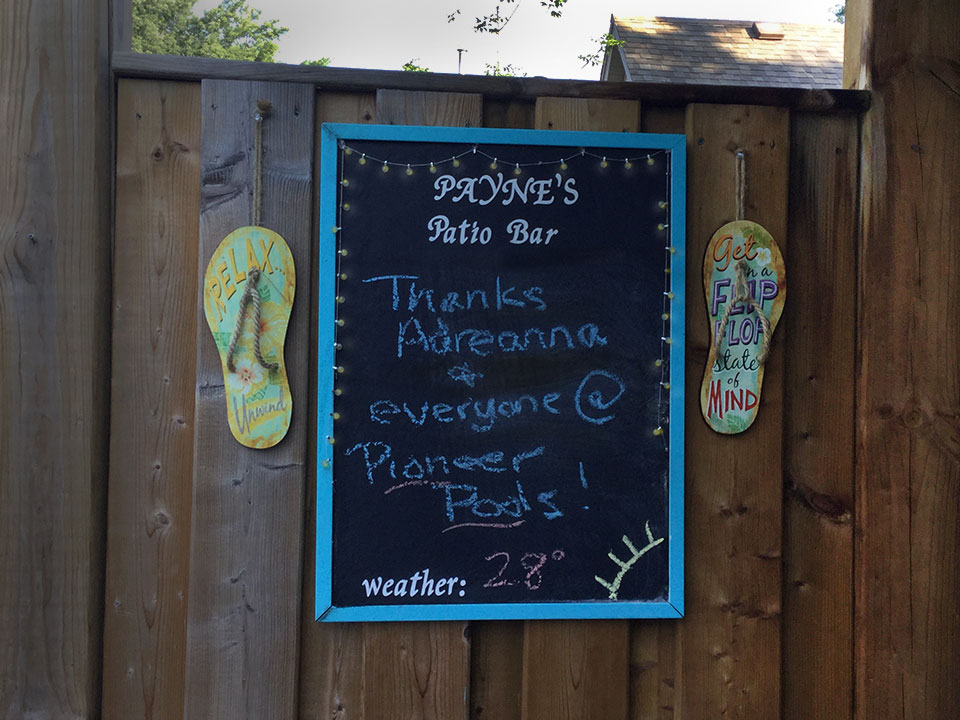 PAYNE'S
Patio Bar
Thanks
Adreanna
+
everyone @
Pioneer
Pools!
weather: 28°
RELAX...
Unwind
Get
in a
FLIP
FLOP
state
of
MIND